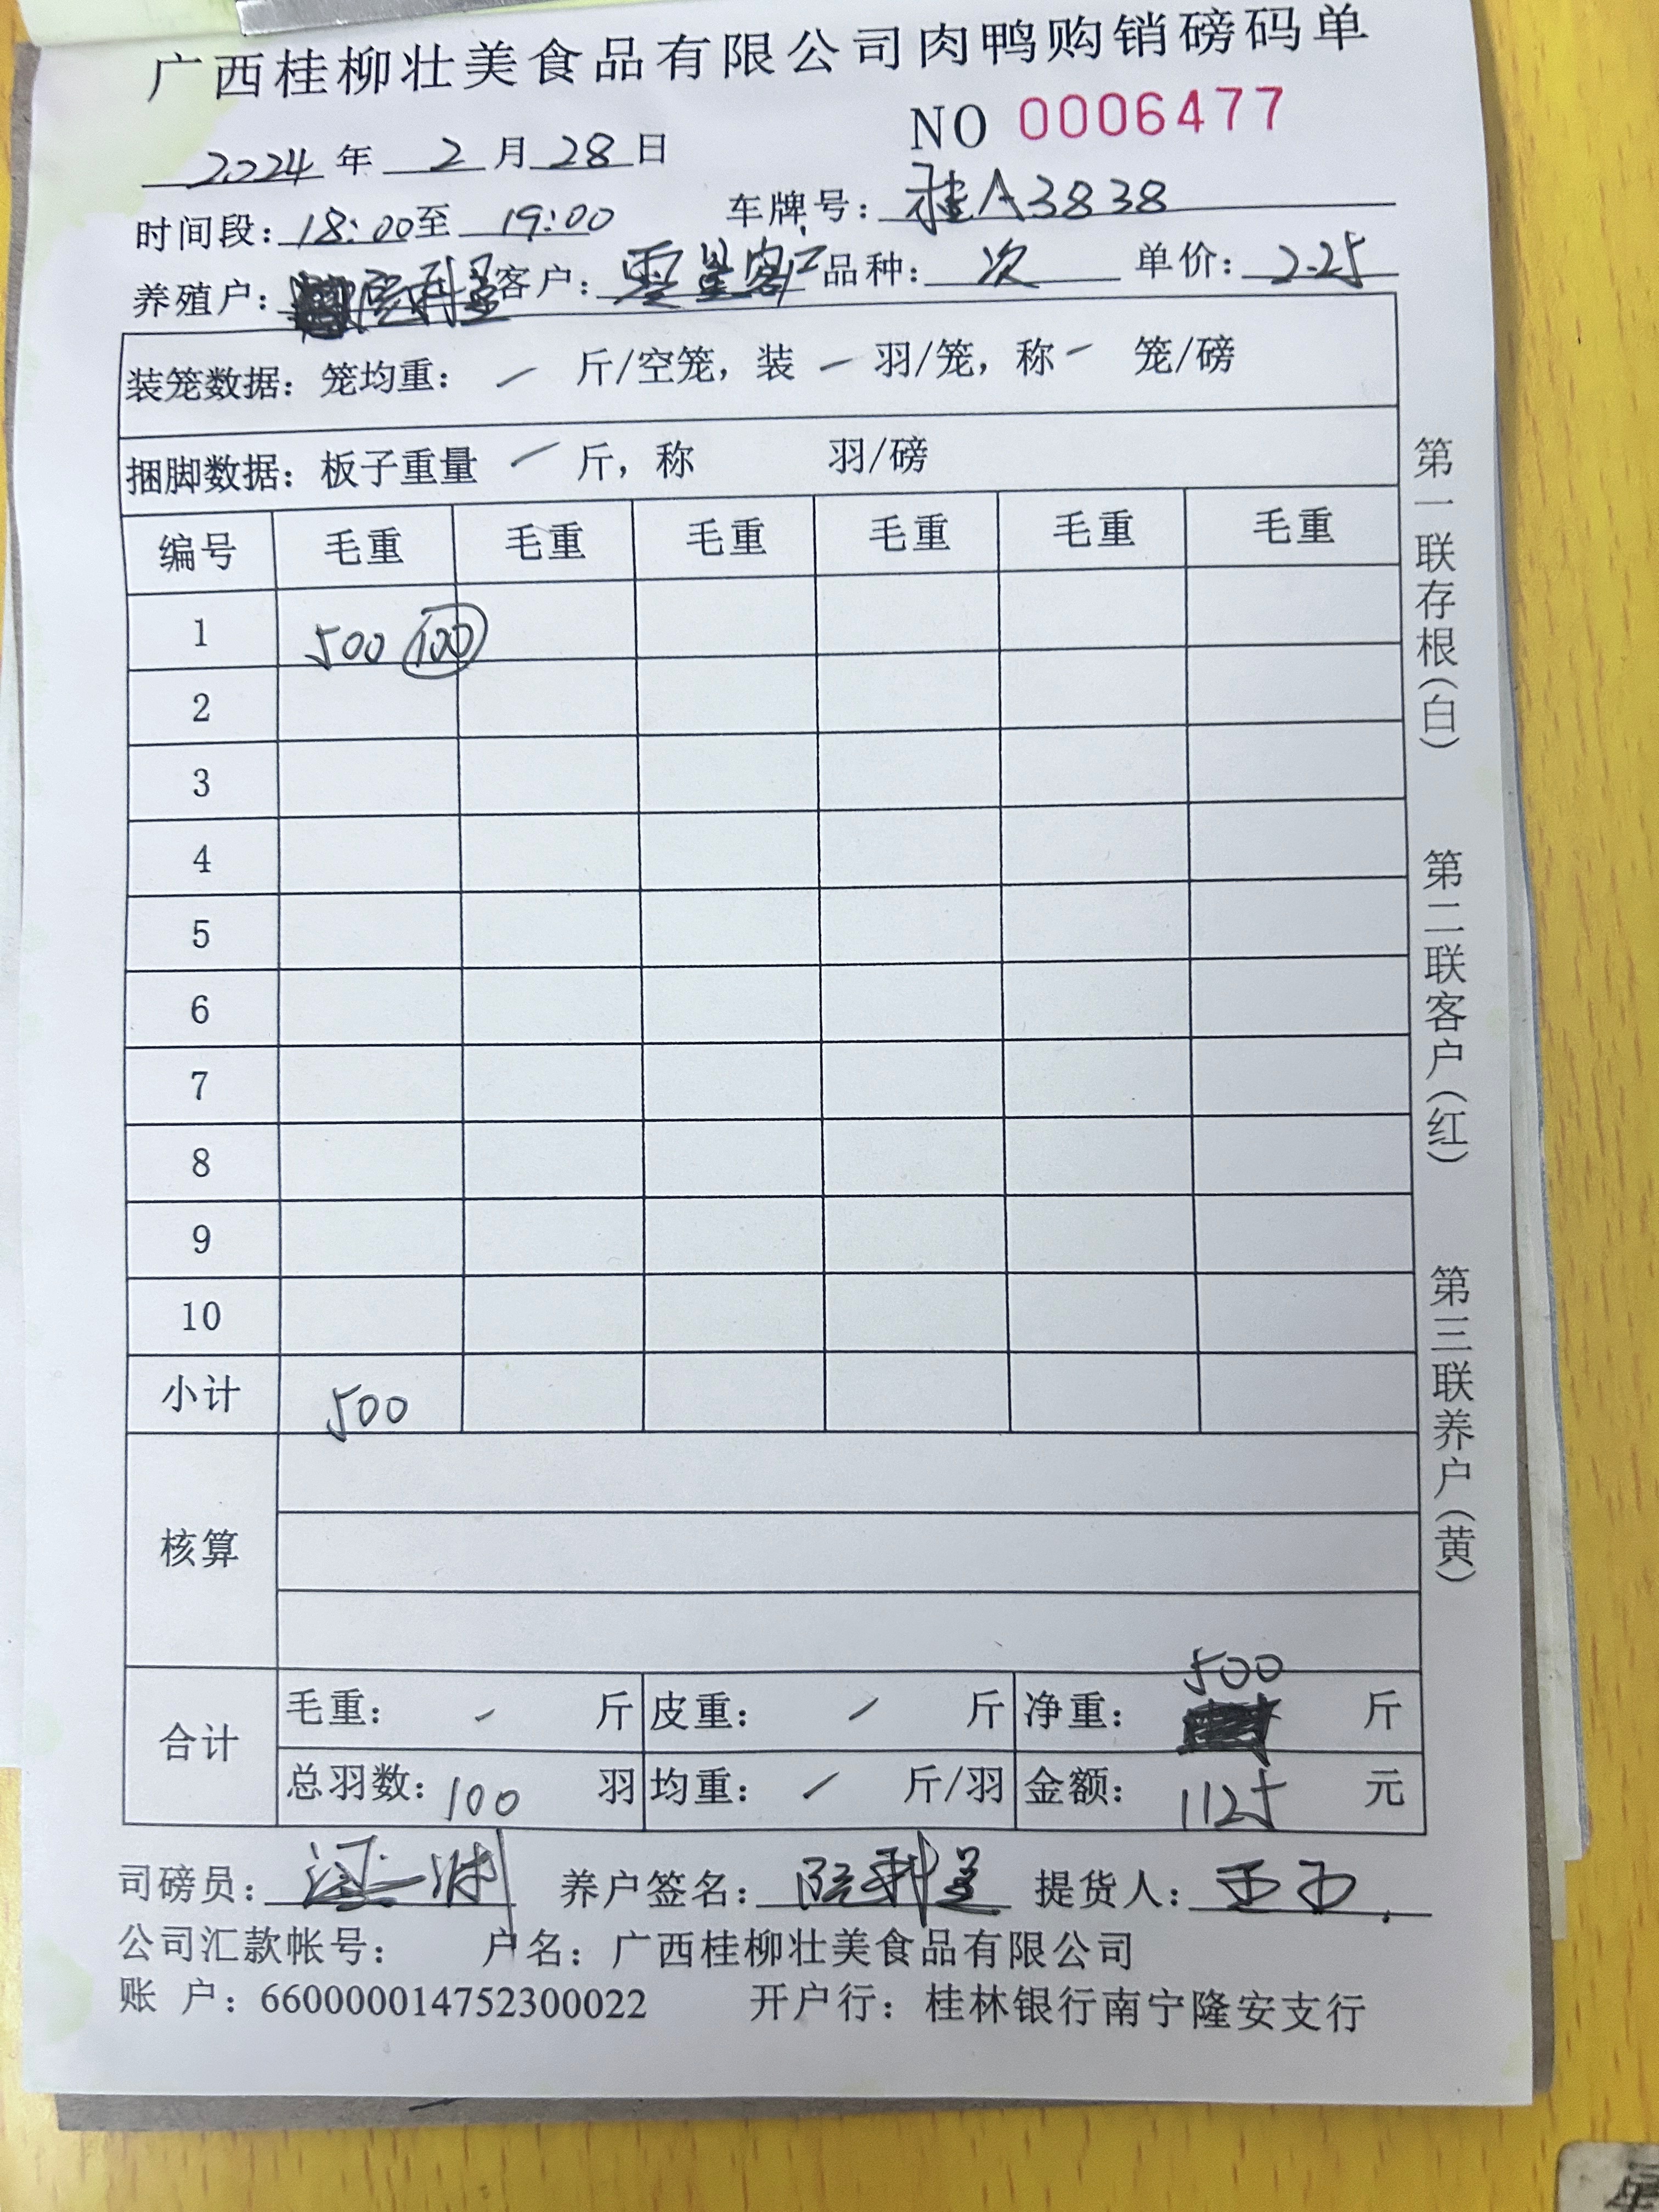 广西桂柳壮美食品有限公司肉鸭购销磅码单
NO 0006477
2024 年 2 月 28 日
时间段：18:00 至 19:00 车牌号：桂A3838
养殖户： 客户：零星客户 品种：次 单价：2.25
装笼数据：笼均重： / 斤/空笼，装 / 羽/笼，称 / 笼/磅
捆脚数据：板子重量 / 斤，称 羽/磅
编号 毛重 毛重 毛重 毛重 毛重 毛重
1 500 100
2
3
4
5
6
7
8
9
10
小计 500
核算
合计 毛重： / 斤 皮重： / 斤 净重： 500 斤
总羽数：100 羽 均重： / 斤/羽 金额： 1125 元
司磅员： 养户签名： 提货人：
公司汇款帐号： 户名：广西桂柳壮美食品有限公司
账 户：660000014752300022 开户行：桂林银行南宁隆安支行
第一联存根（白）
第二联客户（红）
第三联养户（黄）